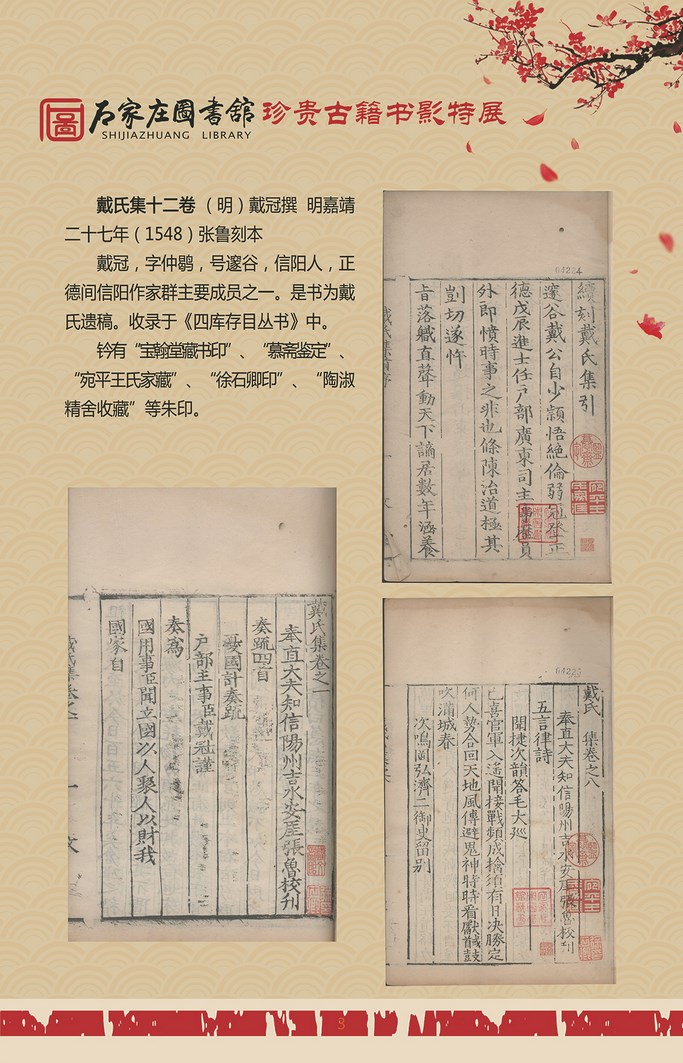 石家庄图書舘 珍贵古籍书影特展
SHIJIAZHUANG LIBRARY
戴氏集十二卷 （明）戴冠撰 明嘉靖
二十七年（1548）张鲁刻本
戴冠，字仲鹖，号邃谷，信阳人，正
德间信阳作家群主要成员之一。是书为戴
氏遗稿。收录于《四库存目丛书》中。
钤有“宝翰堂藏书印”、“慕斋鉴定”、
“宛平王氏家藏”、“徐石卿印”、“陶淑
精舍收藏”等朱印。
04224
續刻戴氏集引
邃谷戴公自少穎悟絶倫弱冠登正
德戊辰進士任户部廣東司主
員
外即憤時事之非也條陳治道極其
剴切遂忤
旨落職直聲動天下謫居數年涵養
戴氏集卷之一
奉直大夫知信陽州吉水安厓張魯校刋
奏䟽四首
憂國計奏䟽
户部主事臣戴冠謹
奏爲
國用事臣聞立國以人聚人以財我
國家自
04225
戴氏集卷之八
奉直大夫知信陽州吉水安厓張魯校刋
五言律詩
聞捷次韻答毛大廵
已喜官軍入遥聞接戰頻成擒須有日决勝定
何人勢合回天地風傳避鬼神時時看獻馘鼓
吹滿城春
次鳴岡弘濟二御史留别
3